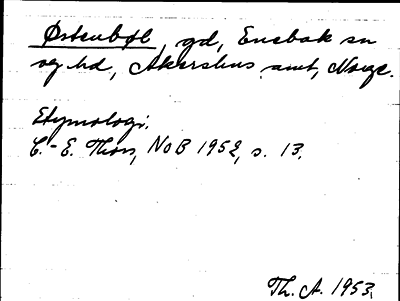 Østenbøl, gd, Enebak sn
og hd, Akershus amt, Norge.
Etymologi.
C.-E. Thors, NoB 1952, s. 13.
Th. A. 1953.